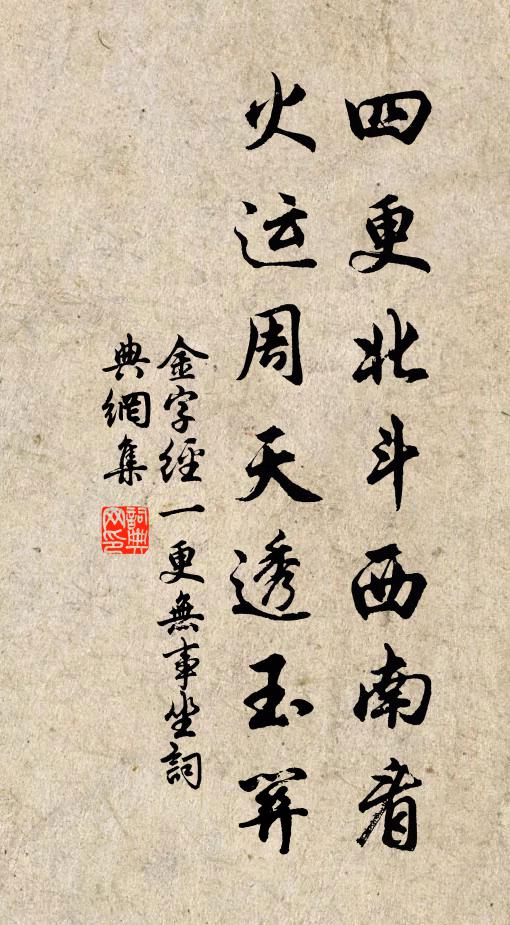 四更北斗西南看
火运周天透玉關
金字經一更無事坐詞
典網集
詞典网印